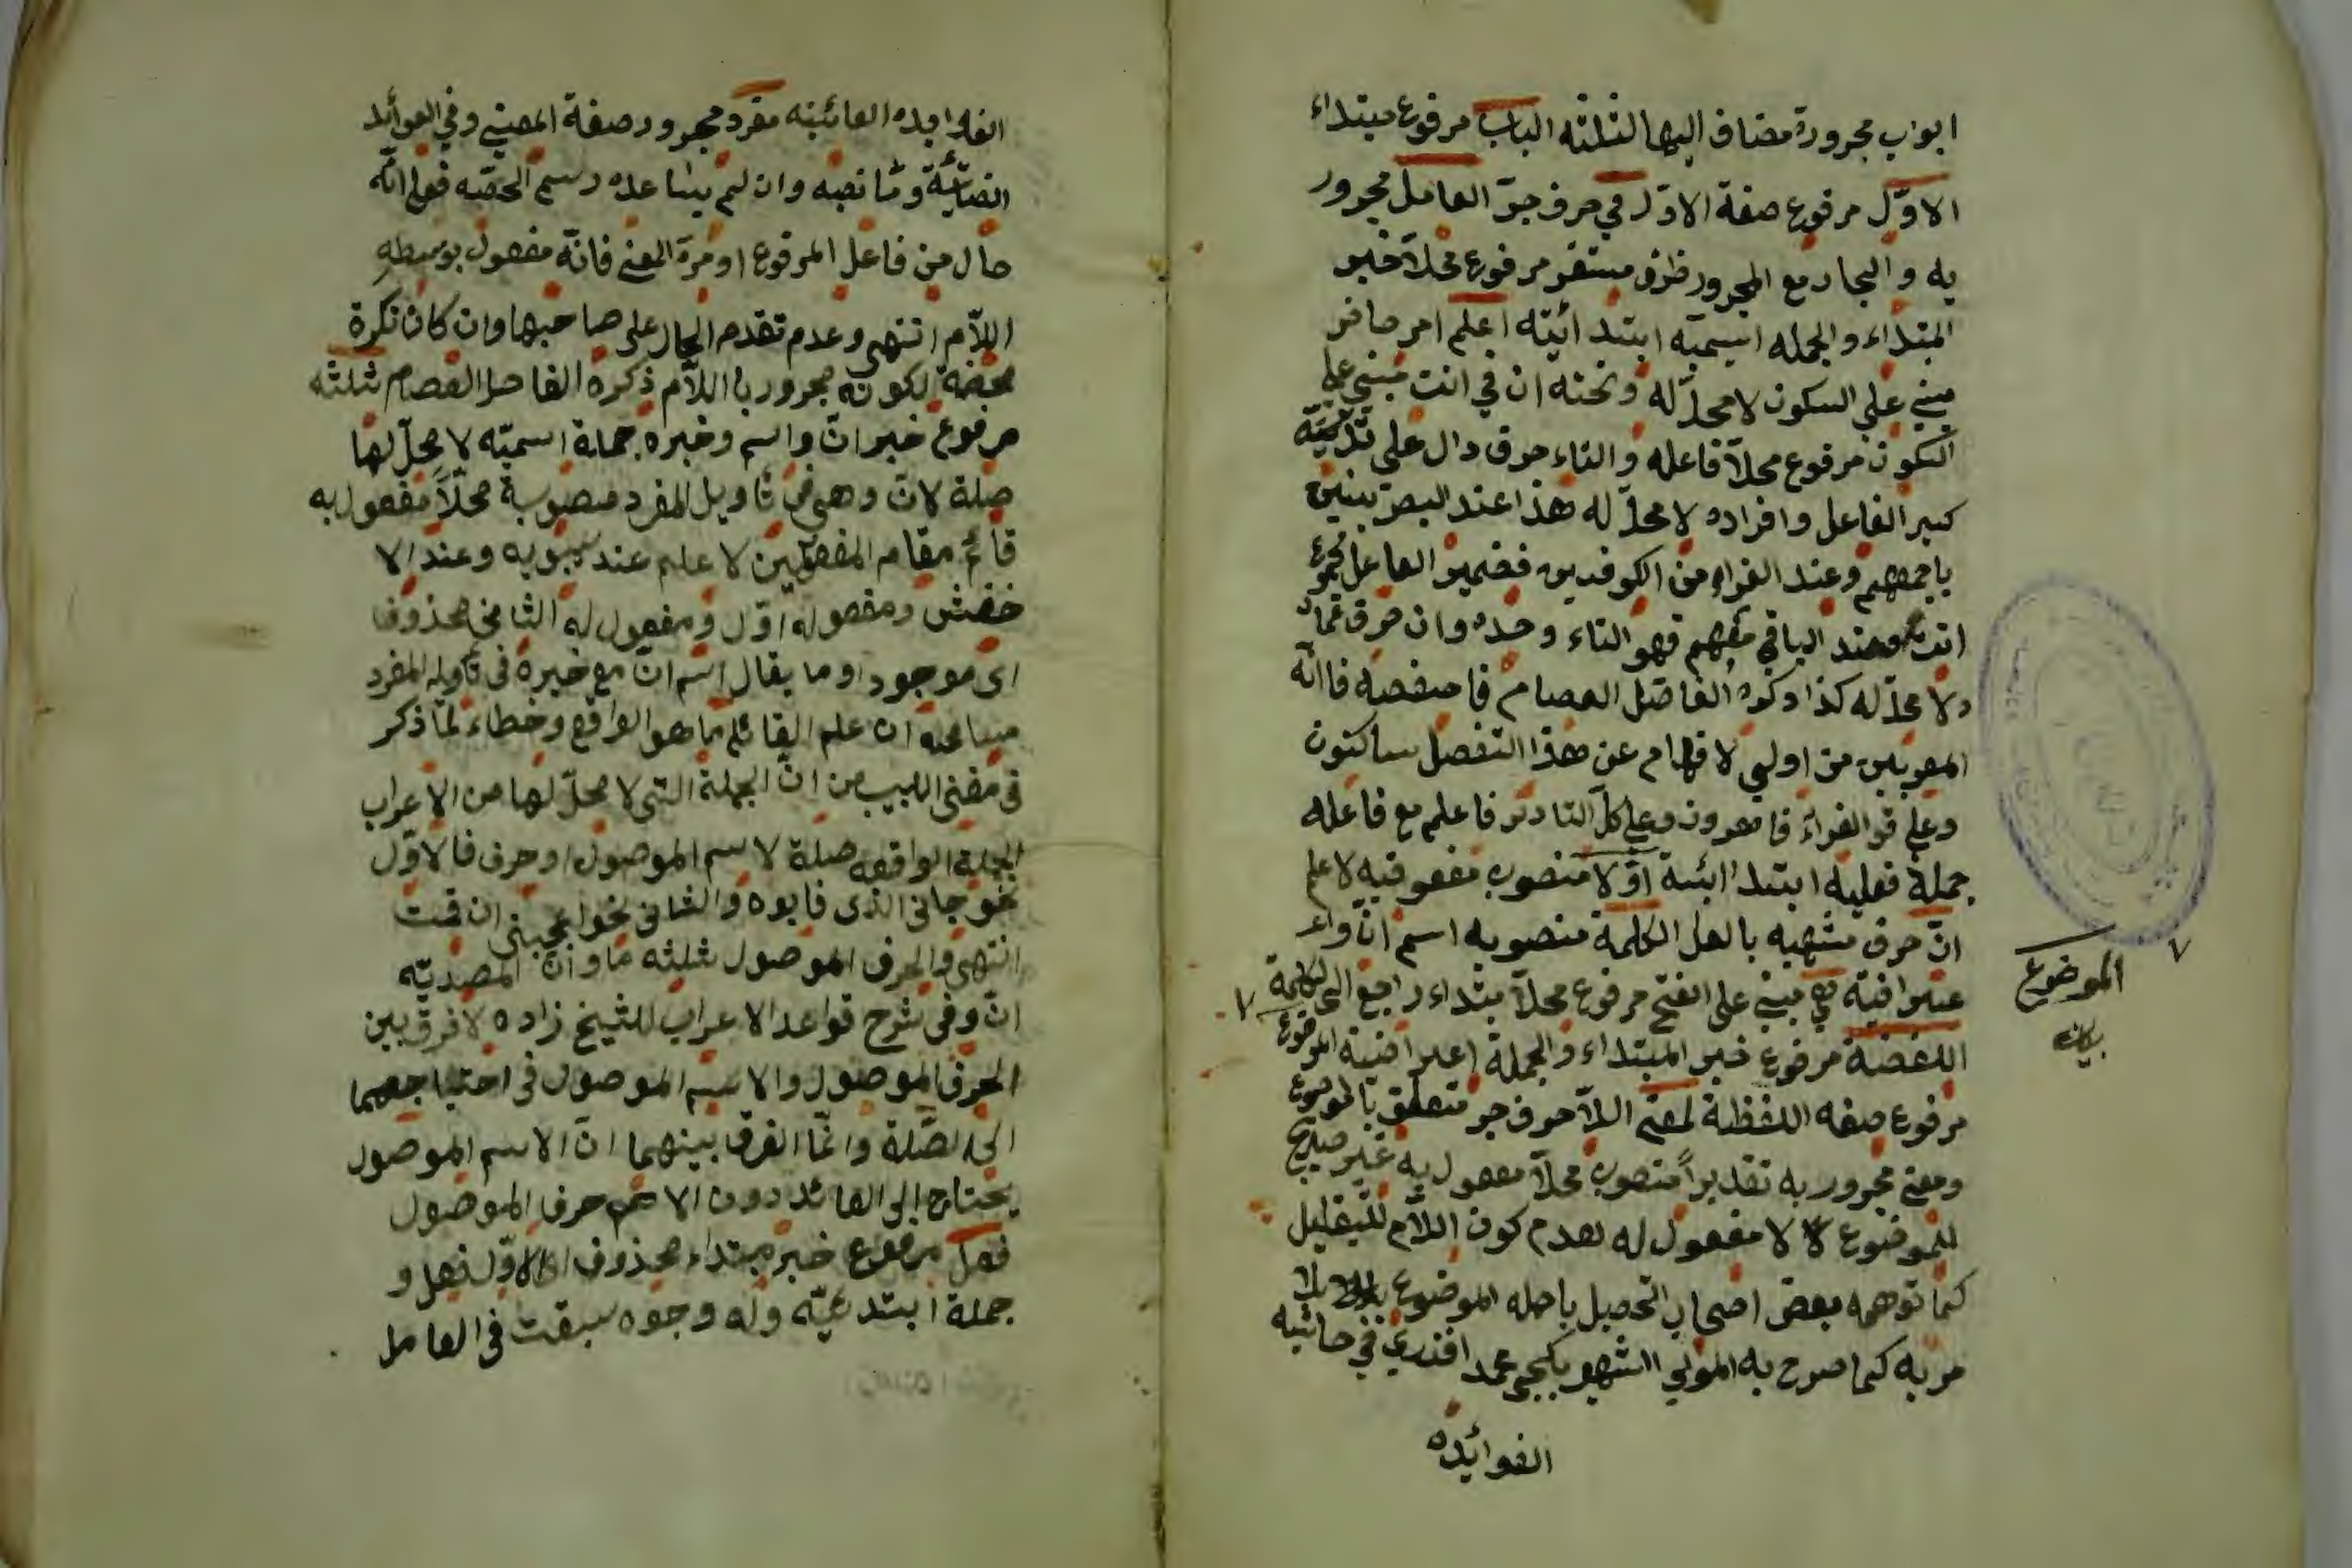 ابواب مجرورة مضاف اليها لثلثه الباب مرفوع مبتداء
الاوّل مرفوع صفة الاوّل في حرف جرّ العامل مجرور
به والجار مع المجرور ظرف مستقر مرفوع محلاً خبر
المبتداء والجمله اسميّه ابتدائيّه اعلم امر حاضر
مبني على السكون لا محلّ له وتحته ان في انت مبني على
السكون مرفوع محلاً فاعله والتاء حرف دال على تذكيته
كبير الفاعل وافراده لا محلّ له هذا عند البصريين
باجمعهم وعند الفراء من الكوفيين فضمير الفاعل مجموع
انت وعند الباقي منهم فهو التاء وحده وان حرف عماد
ولا محلّ له كذا ذكره الفاضل العصام فا منفصه فاانّه
المعربين من اولى لافهام عن هذا التفصل ساكتون
وعلى قو الفراء فامعرون وعلى كلّ التا در فاعلم مع فاعله
جملة فعليه ابتدائية اوّلا منصوب مفعو فيه لاعلم
انّ حرف مشبهه بالفعل الكلمة منصوبه اسم انّ واعر
عتراضية هي مبني على الفتح مرفوع محلاً مبتداء راجع الى الكلمة
اللفظية مرفوع خبر المبتداء والجملة اعتراضية الموضوع
مرفوع صفه اللفظة لمعنى اللاّ حرف جر متعلق بالموضوع
ومعنى مجرور به تقديراً منصوب محلاً مفعول به غير صريح
للموضوع لا مفعول له لعدم كون اللاّم للتعليل
كما توهمه بعض اصحاب التحصيل باجله الموضوع
مر به كما صرح به المولى الشهير بكيجى محمد افندي في حاشيه
الفوائده
الموضوع
بيان
الفوايده الفائيّه مفرد مجرور صفة المعنى وفي الفوائد
الضيائيّة وشانصبه وان لم يساعده رسم الخطّه فعلى انّه
حال من فاعل المرفوع او من المعنى فانّه مفعول بوسطه
اللاّم انتهى وعدم تقدم الحال على صاحبها وان كان نكرة
محضة لكونه مجرور با اللاّم ذكره الفاضل العصام ثلثه
مرفوع خبر انّ واسم وخبره جملة اسميّه لا محلّ لها
صلة لانّ وهي في تأويل المفرد منصوبة محلاً مفعول به
قائم مقام المفعولين لاعلم عند سيبويه وعند الا
خفش ومفعوله اوّل ومفعول له الثاني محذوف
اى موجود او ما يقال اسم انّ مع خبره في تأويله المفرد
مسامحه ان علم القائل ما هو الواقع وخطاء لما ذكر
في مغنى اللبيب من انّ الجملة التى لا محلّ لها من الاعراب
الجملة الواقعه صلة لاسم الموصول او حرف فالاوّل
نحو جانى الذى قابوه والثانى نحو اعجبنى ان قمت
انتهى والحرف الموصول ثلثه ما وان المصدريّه
انّ وفى شرح قواعد الاعراب للشيخ زاده لا فرق بين
الحرف الموصول والاسم الموصول فى احتياجهما
الى الصّلة وانّما الفرق بينهما انّ الاسم الموصول
يحتاج الى العائد دون الاسم حرف الموصول
فعل مرفوع خبر مبتداء محذوف اى الاوّل فعل و
جملة ابتدئيّه وله وجوه سبقت فى العامل